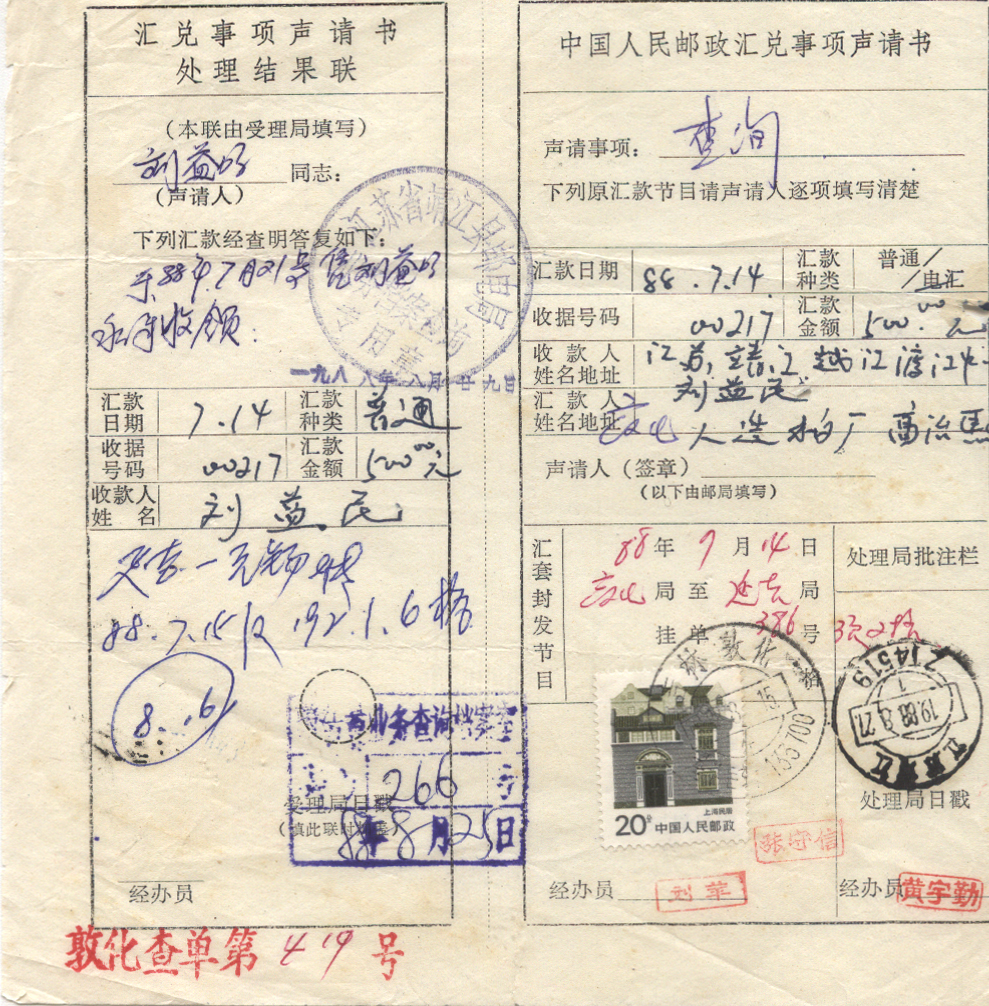 汇兑事项声请书
处理结果联
(本联由受理局填写)
刘益明 同志:
(声请人)
下列汇款经查明答复如下:
于88年7月21号 凭刘益明
收领.
江苏省靖江县邮电局
档案查询
专用章
一九八八年八月廿九日
汇款日期 7.14 汇款种类 普通
收据号码 00217 汇款金额 500.00元
收款人姓名 刘益民
88.7.15
8..6
业务查询档案
266号
受理局日戳
88年8月25日
经办员
敦化查单第419号
中国人民邮政汇兑事项声请书
声请事项: 查询
下列原汇款节目请声请人逐项填写清楚
汇款日期 88.7.14 汇款种类 普通/电汇
收据号码 00217 汇款金额 500.00元
收款人姓名地址 江苏靖江越江渡江
刘益民
汇款人姓名地址 敦化人造板厂 高治
声请人(签章)
(以下由邮局填写)
汇套封发节目
88年7月14日
敦化局至延吉局
挂单386号
格
处理局批注栏
林敦化
133700
214519
1988.8.27
上海民居
20分 中国人民邮政
处理局日戳
张守信
经办员 刘苹
经办员 黄宇勤